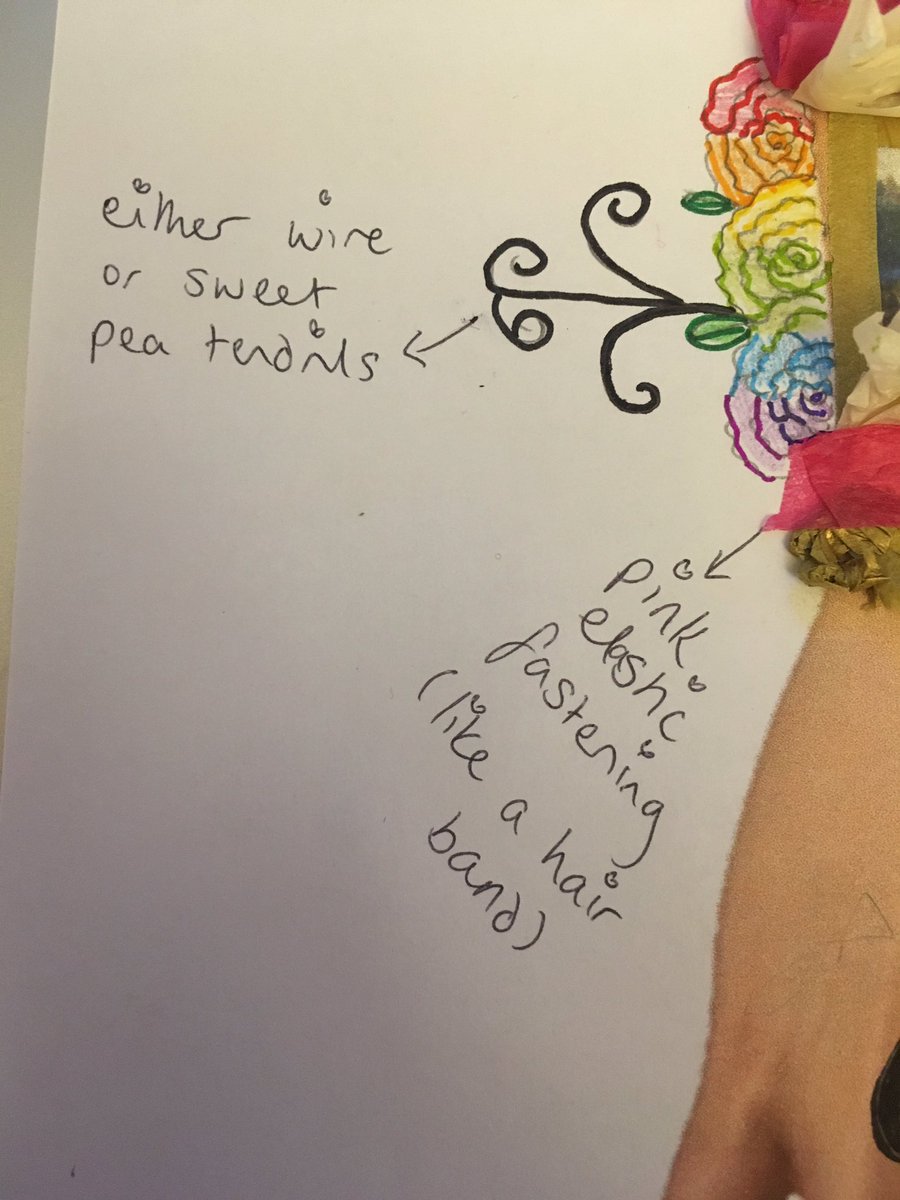 either wire
or sweet
pea tendrils
pink
elastic
fastening
(like a hair
band)